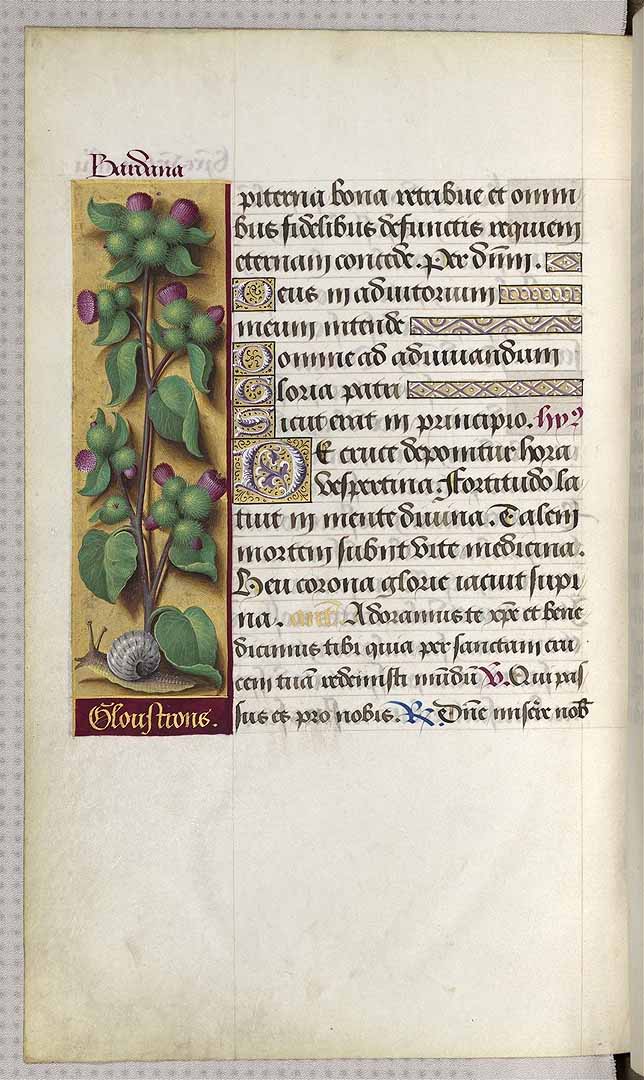 Bardana
piterna bona retribue et omni
bus fidelibus defunctis requiem
eternam concede. Per dñm.
Deus in adiutorium
meum intende
Domine ad adiuuandum
Gloria patri
Sicut erat in principio. hy⁹
DE cruce deponitur hora
Vespertina. Fortitudo la
tuit in mente diuina. Talem
mortem subiit vite medicina.
Heu corona glorie iacuit supi
na. Ana Adoramus te xp̃e et bene
dicimus tibi quia per sanctam cru
cem tuã redemisti mũdũ V. Qui pas
sus es pro nobis. R. Dñe miserẽ nob̃
Gloustrons.